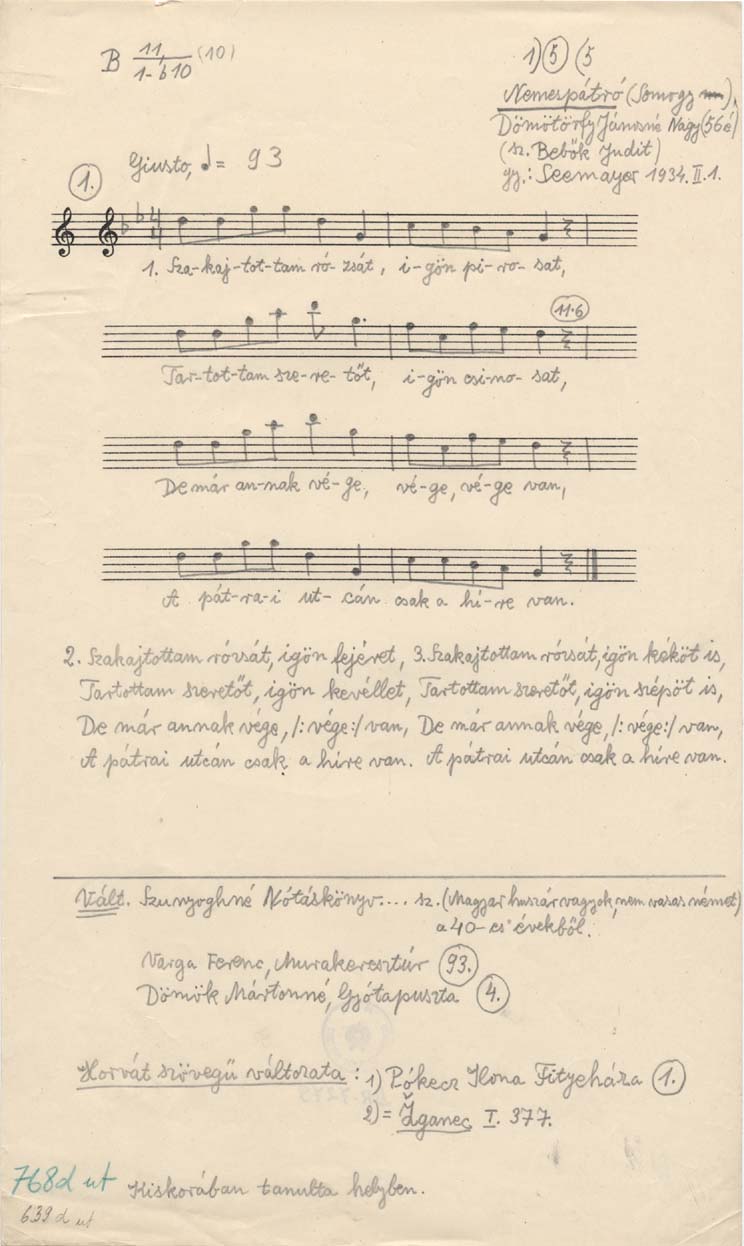 B 11/1-b10 (10)
1) 5 (5
Nemespátró (Somogy m),
Dömötörfy Jánosné Nagy (56 é)
(sz. Bebők Judit)
gy.: Seemayer 1934. II. 1.
Giusto, ♩= 93
1.
1. Sza-kaj-tot-tam ró-zsát, i-gön pi-ro-sat,
11.6
Tar-tot-tam sze-re-tőt, i-gön csi-no-sat,
De már an-nak vé-ge, vé-ge, vé-ge van,
A pát-ra-i ut-cán csak a hí-re van.
2. Szakajtottam rózsát, igön fejéret, 3. Szakajtottam rózsát, igön kéköt is,
Tartottam szeretőt, igön kevéllet, Tartottam szeretőt, igön szépöt is,
De már annak vége, /: vége :/ van, De már annak vége, /: vége :/ van,
A pátrai utcán csak a híre van. A pátrai utcán csak a híre van.
Vált. Szunyoghné Nótáskönyv.... sz. (Magyar huszár vagyok, nem vasas német)
a 40-es évekből.
Varga Ferenc, Murakeresztúr 93.
Dömők Mártonné, Gyótapuszta 4.
Horvát szövegű változata: 1) Pókecz Ilona Fityeháza 1.
2) = Žganec I. 377.
768d ut Kiskorában tanulta helyben.
639 d ut